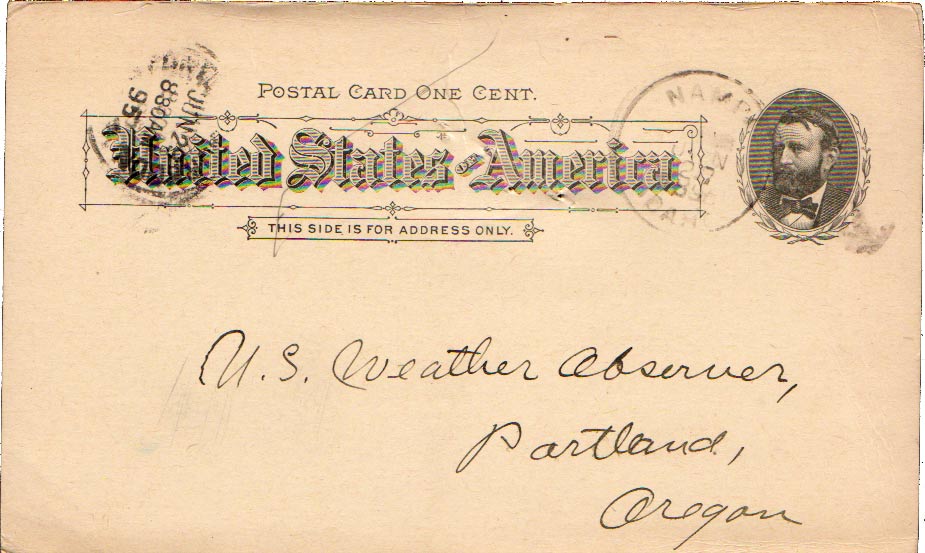 POSTAL CARD ONE CENT.
United States of America
THIS SIDE IS FOR ADDRESS ONLY.
JUN 2
8 30 AM
95
NAMP
U.S. Weather Observer,
Portland,
Oregon